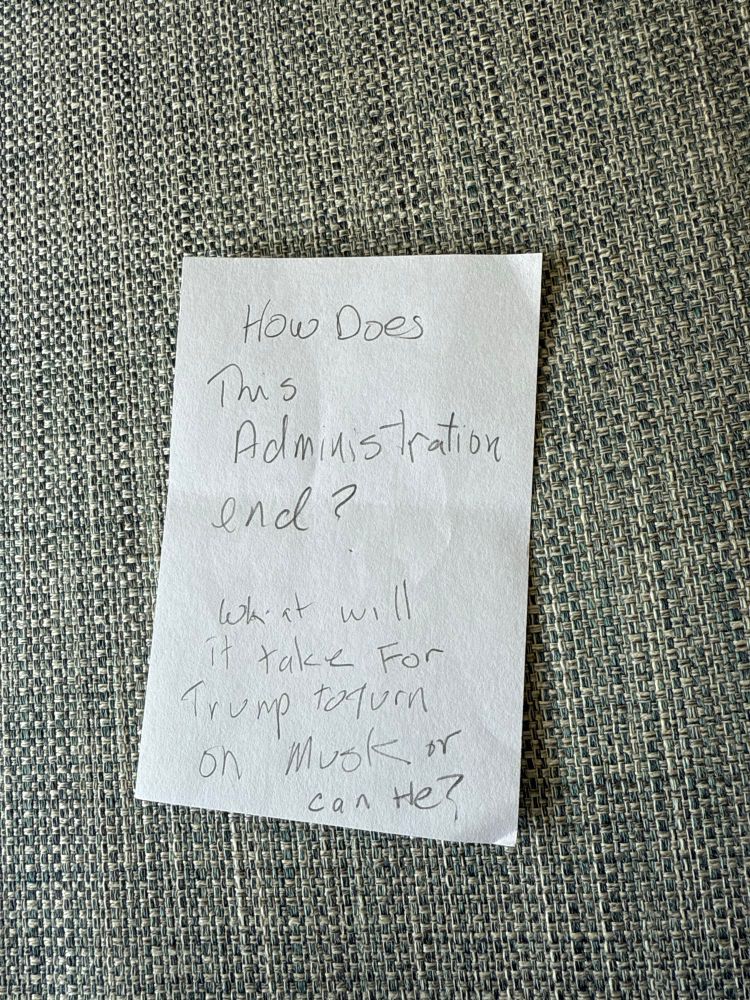 How Does
This
Administration
end?
What will
it take For
Trump to turn
on Musk or
can He?